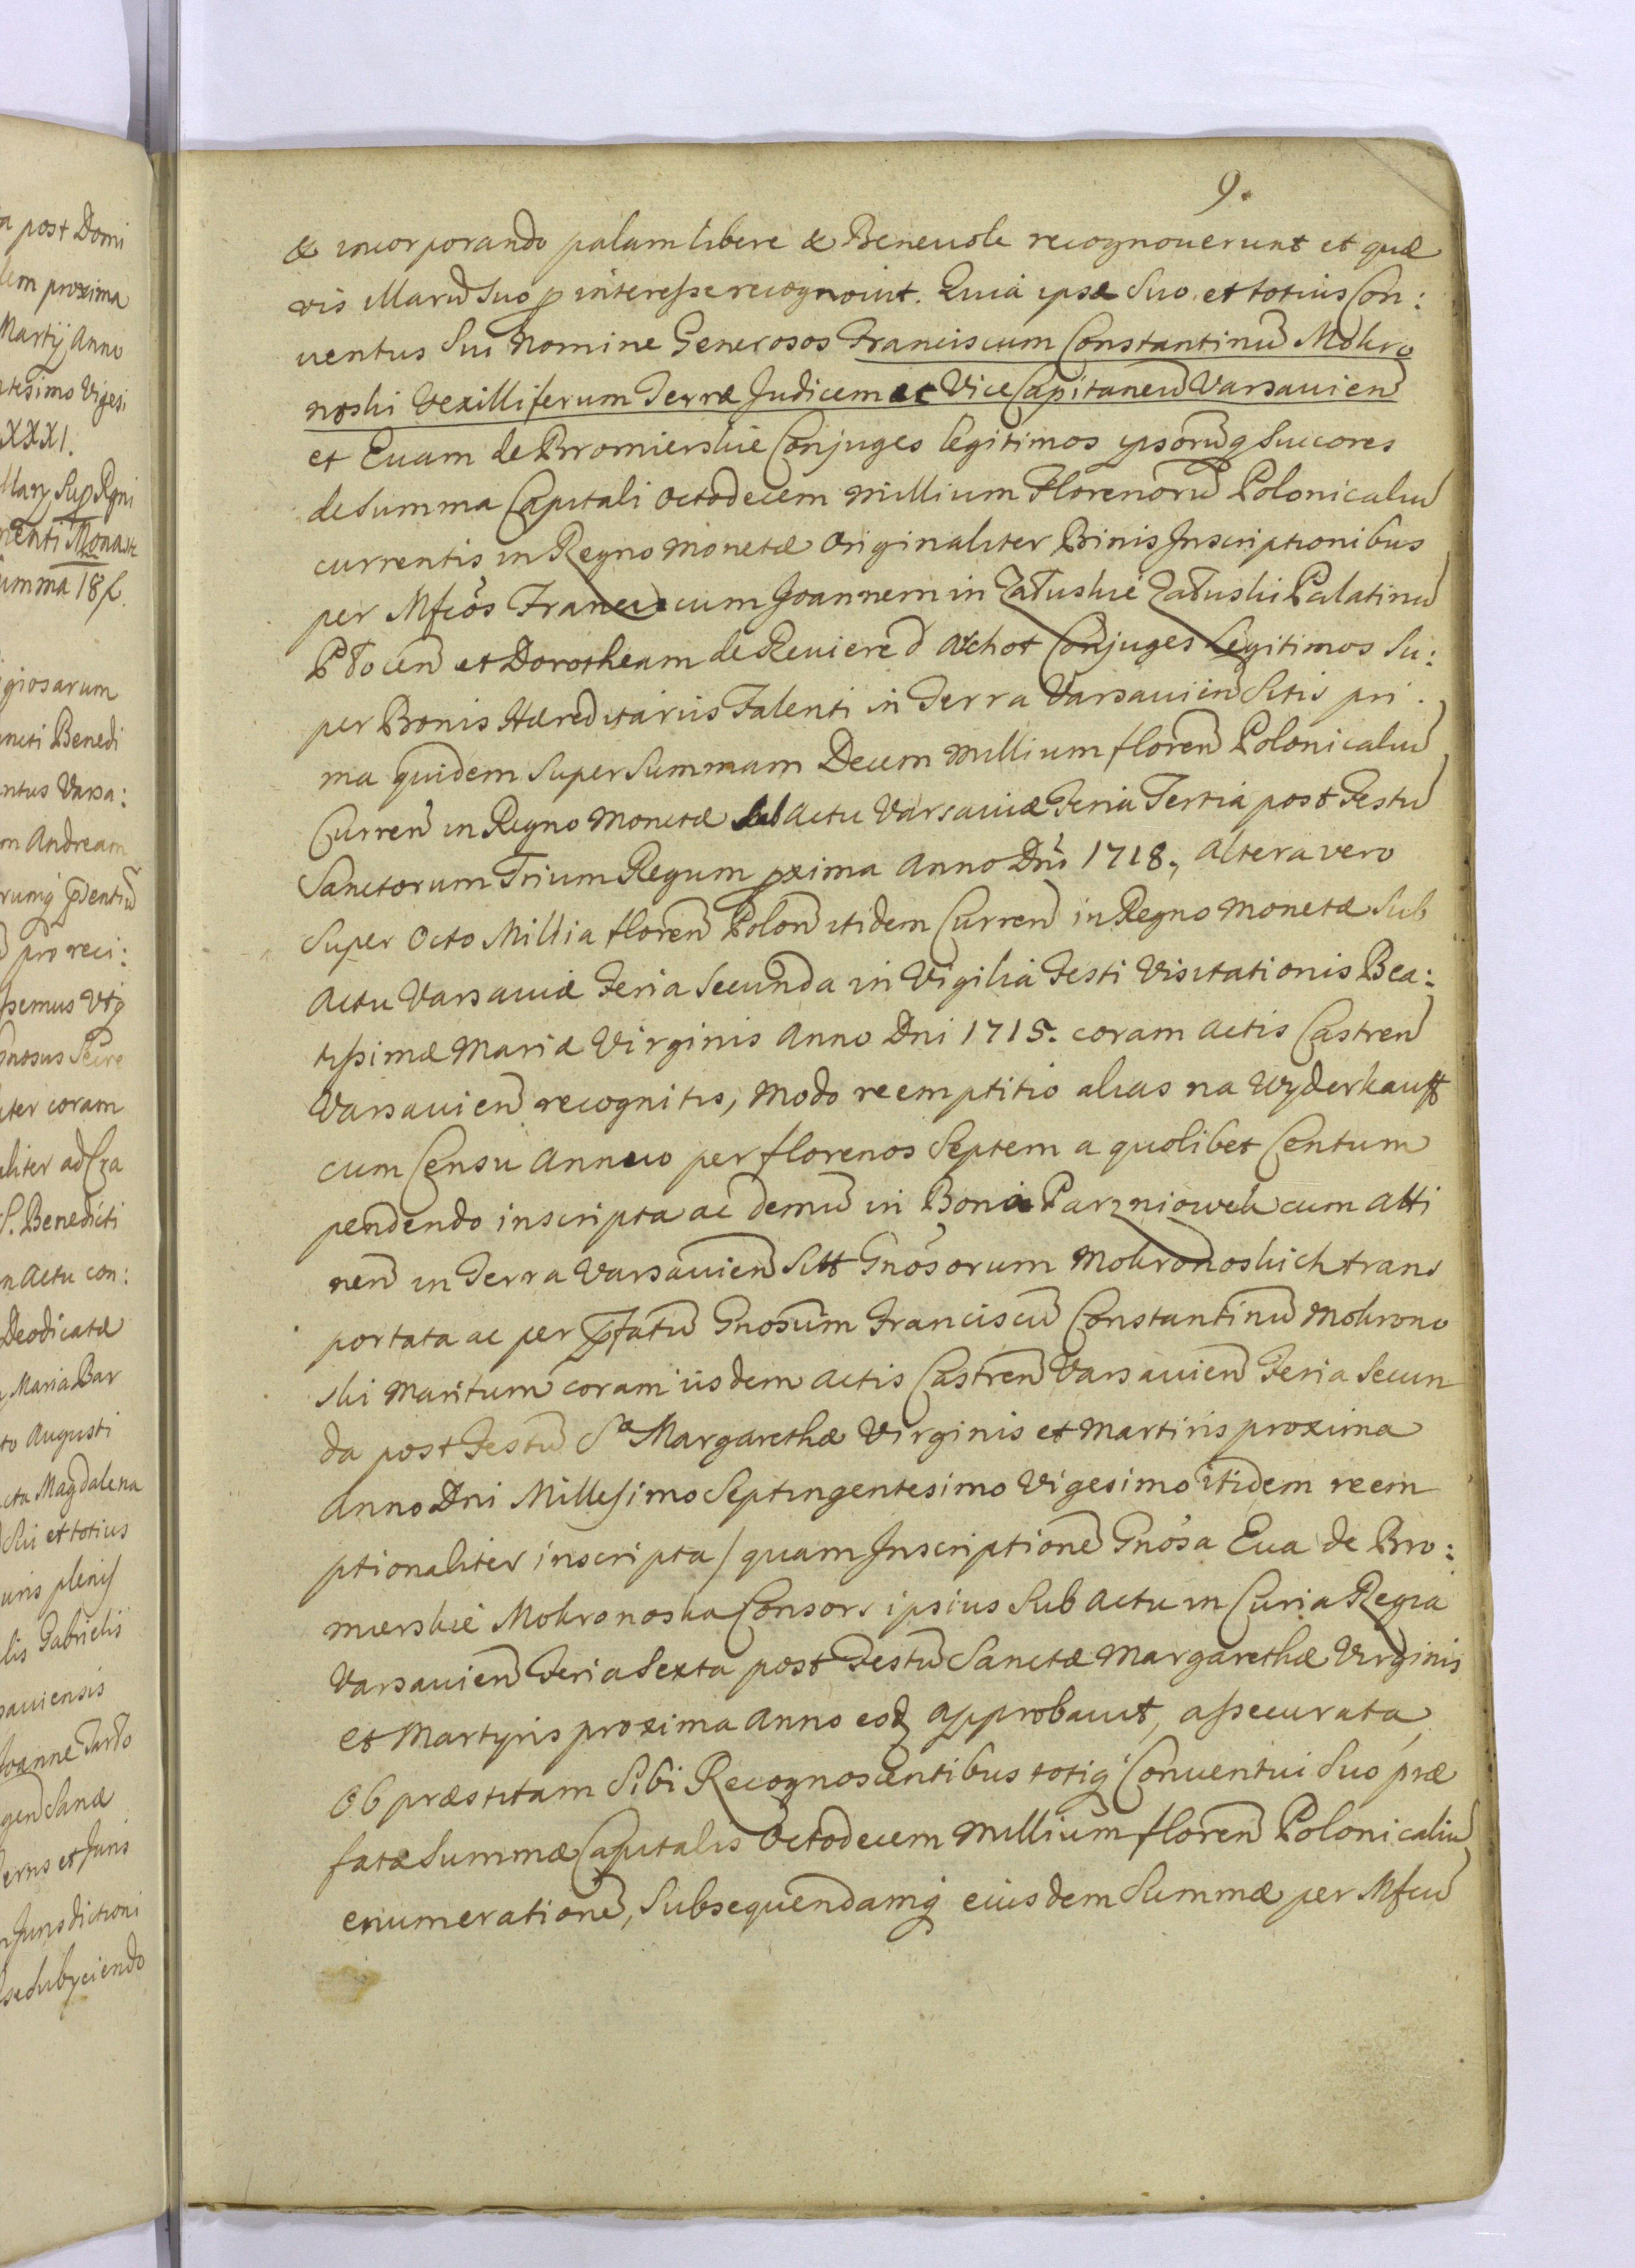 a post Domi
dem proxima
Martij Anno
ntesimo Vigesi
XXXI.
Mary Sup Rgni
menti Monast
summa 18f.
igiosarum
ncti Benedi
ntus Varsa:
m Andream
pro reci:
Gnosus
iter coram
aliter ad Cra
S. Benedicti
n actu con:
Deodicatæ
Maria Bar
to Augusti
cta Magdalena
Sui et totius
uris plenis
lis Gabrielis
saviensis
Joanne
ernis et Juris
Jurisdictioni
se subyciendo
9.
& incorporando palam libere & Beneuole recognouerunt et quæ
vis Maritũ Suo p interesse recognovit. Quia ipsæ Suo et totius Con:
uentus Sui Nomine Generosos Franciscum Constantinũ Mokro
noski Vexilliferum Terræ Judicem ac ViceCapitaneũ Varsavien̄
et Euam de Bromierskie Conjuges legitimos ipsorũq Succores
de Summa Capitali Octodecem Millium Florenorũ Polonicaliũ
currentis in Regno Monetæ Originaliter Binis Inscriptionibus
per Mfcōs Franciscum Joannem in Załuskie Załuski Palatinũ
Płocen̄ et Dorotheam de Reviere d Achot Conjuges Legitimos Su:
per Bonis Hæreditariis Falenti in Terra Varsavien̄ Sitis pri
ma quidem Super Summam Decem Millium floren̄ Polonicaliũ
Curren̄ in Regno Monetæ Sub Actu Varsaviæ Feria Tertia post Festũ
Sanctorum Trium Regum pxima Anno Dñi 1718., altera vero
Super Octo Millia floren̄ Polon̄ itidem Curren̄ in Regno Monetæ Sub
Actu Varsaviæ Feria Secunda in Vigilia Festi Visitationis Bea:
tissimæ Mariæ Virginis Anno Dni 1715. coram Actis Castren̄
Varsavien̄ recognitis, Modo reemptitio alias na Wyderkauff
cum Censu Annuo per florenos Septem a quolibet Centum
pendendo inscripta ac demũ in Bonis Parzniowek cum Atti
nen̄ in Terra Varsavien̄ Sitt Gnōsorum Mokronoskich trans
portata ac per pfatũ Gnosum Franciscũ Constantinũ Mokrono
ski Maritum coram iisdem Actis Castren̄ Varsavien̄ Feria Secun
da post Festũ Sæ Margarethæ Virginis et Martiris proxima
Anno Dni Millesimo Septingentesimo Vigesimo itidem reem
ptionaliter inscripta / quam Inscriptionē Gnōsa Eua de Bro:
mierskie Mokronoska Consors ipsius Sub Actu in Curia Regia
Varsavien̄ Feria Sexta post Festũ Sanctæ Margarethæ Virginis
et Martyris proxima Anno eod approbavit, assecurata
Ob præstitam Sibi Recognoscentibus totiq Conuentui Suo præ
fatæ Summæ Capitalis Octodecem Millium floren̄ Polonicaliũ
enumerationē, Subsequendamq eiusdem Summæ per Mfcũ